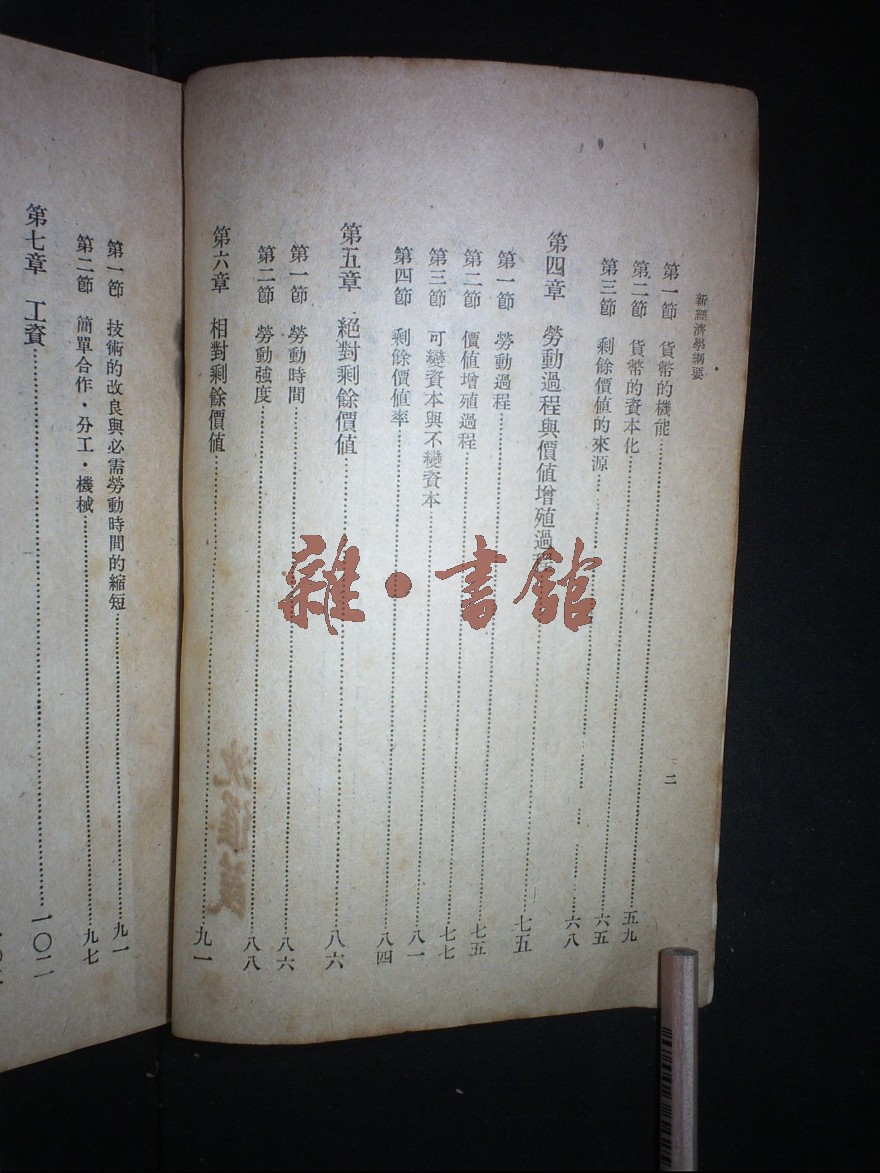 新經濟學綱要
二
第一節 貨幣的機能……五九
第二節 貨幣的資本化……六五
第三節 剩餘價值的來源……六八
第四章 勞動過程與價值增殖過程……七五
第一節 勞動過程……七五
第二節 價值增殖過程……七七
第三節 可變資本與不變資本……八一
第四節 剩餘價值率……八四
第五章 絕對剩餘價值……八六
第一節 勞動時間……八六
第二節 勞動強度……八八
第六章 相對剩餘價值……九一
第一節 技術的改良與必需勞動時間的縮短……九一
第二節 簡單合作・分工・機械……九七
第七章 工資……一〇二
雜・書館